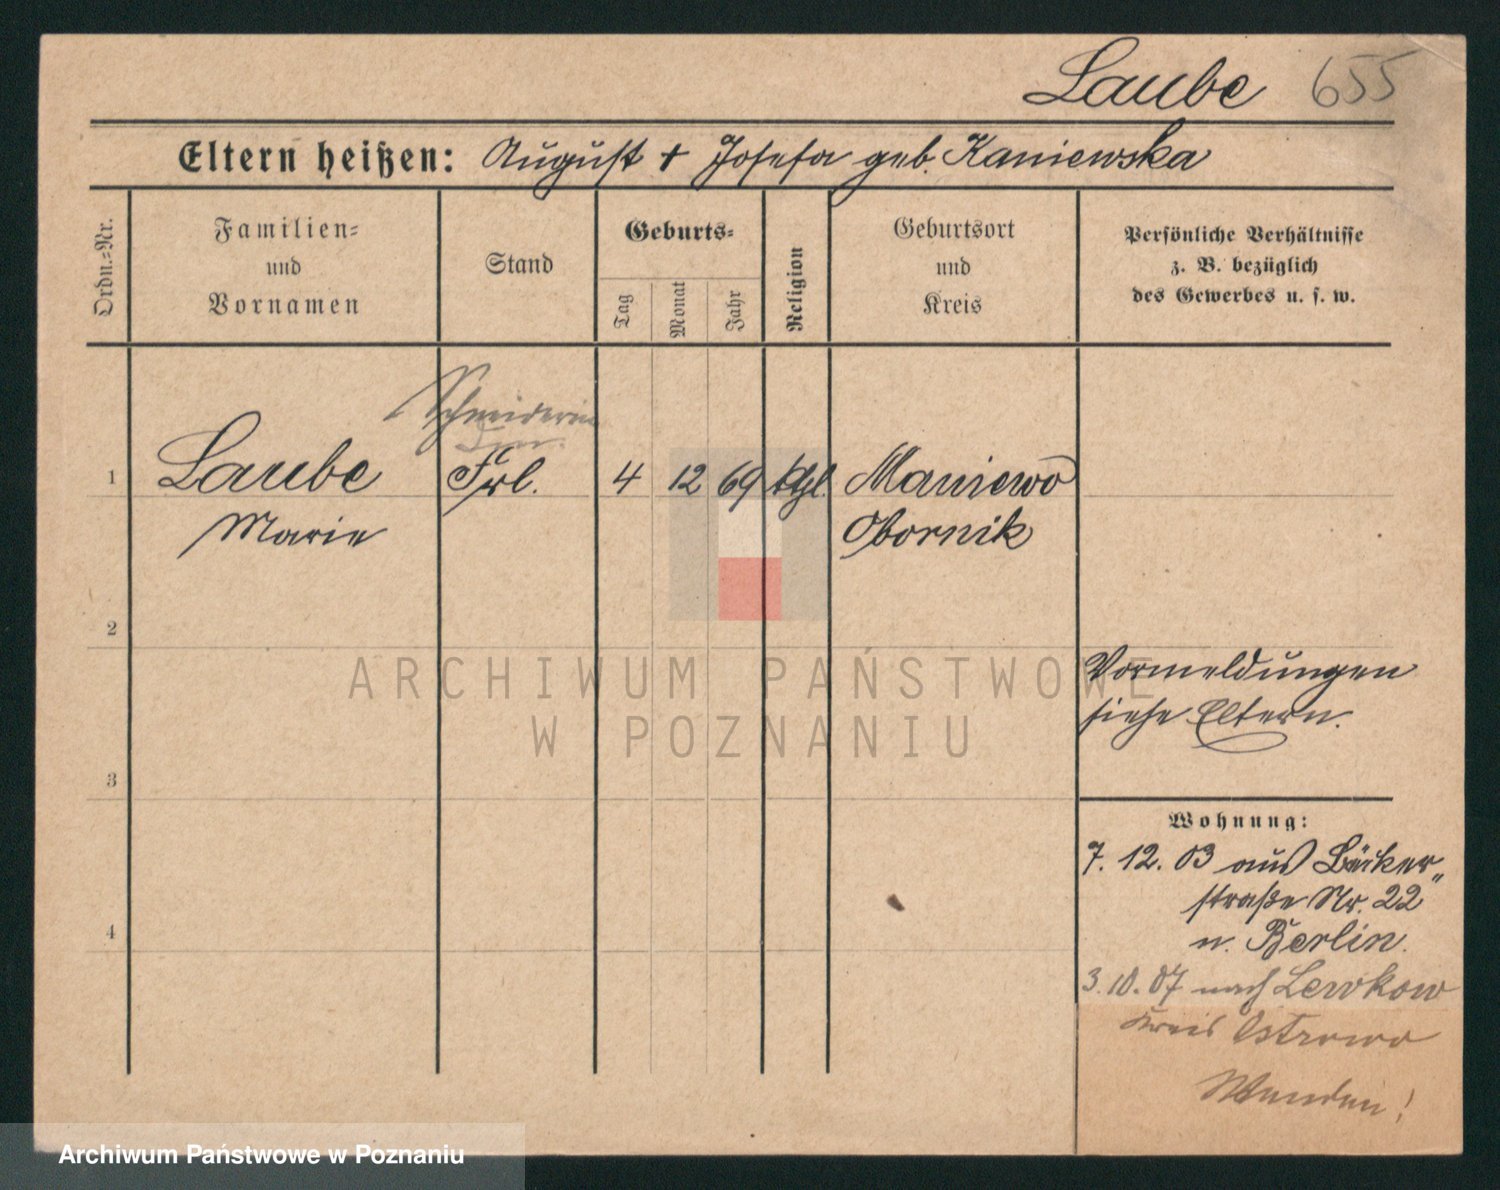 Laube 655
Eltern heißen: August + Josefa geb. Kaniewska
Ordn.=Nr.
Familien=
und
Vornamen
Stand
Geburts=
Tag
Monat
Jahr
Religion
Geburtsort
und
Kreis
Persönliche Verhältnisse
z. B. bezüglich
des Gewerbes u. s. w.
Schneiderin
1 Laube Frl. 4 12 69 kthl. Maniewo
Marie Obornik
2
Vormeldungen
siehe Eltern.
3
Wohnung:
7. 12. 03 aus Bäcker"
straße Nr. 22
n. Berlin.
4
3. 10. 07 nach Lewkow
Kreis Ostrowo
Wenden!
ARCHIWUM PAŃSTWOWE
W POZNANIU
Archiwum Państwowe w Poznaniu